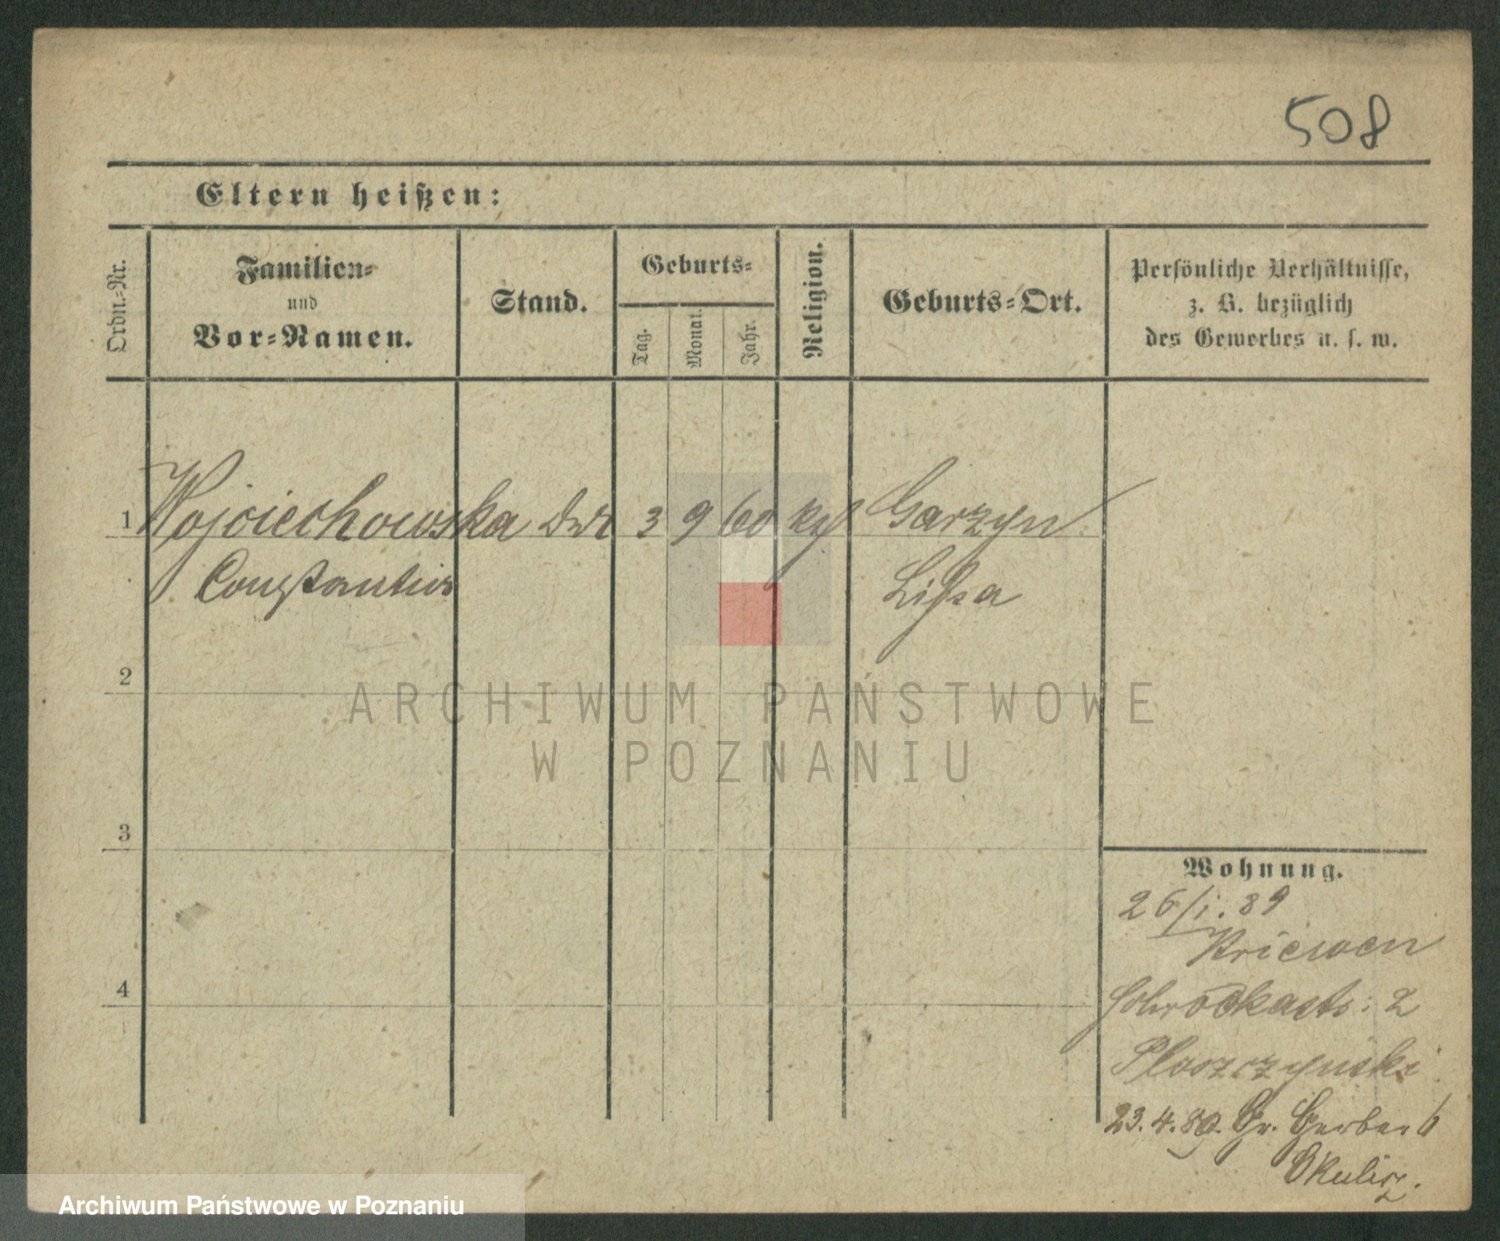 508
Eltern heißen:
Ordn.-Nr.
Familien-
und
Vor-Namen.
Stand.
Geburts-
Tag.
Monat.
Jahr.
Religion.
Geburts-Ort.
Persönliche Verhältnisse,
z. B. bezüglich
des Gewerbes u. s. w.
1 Wojciechowska 3 9 60 Garzyn
Constantia
Lissa
2
ARCHIWUM PAŃSTWOWE
W POZNANIU
3
Wohnung.
26/1. 89
Kriewen
4
2
Ploszczynski
23.4.89. Gr. Gerber 6
Okulisz.
Archiwum Państwowe w Poznaniu